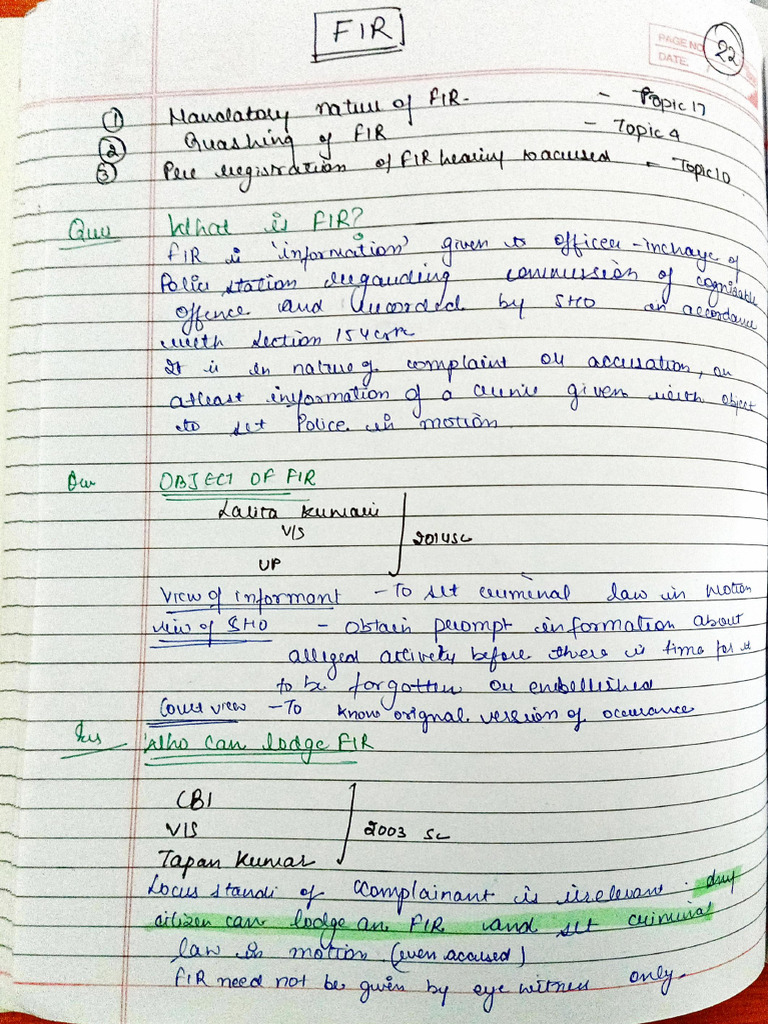 FIR
PAGE NO.
DATE:
22
① Mandatory nature of FIR. - Topic 17
② Quashing of FIR - Topic 4
③ Pre registration of FIR hearing to accused - Topic 10
Que What is FIR?
FIR is 'information' given to officer-incharge of
Police station regarding commission of cognizable
offence and recorded by SHO in accordance
with section 154 crpc
It is in nature of complaint or accusation, or
atleast information of a crime given with object
to set Police in motion.
Que OBJECT OF FIR
Lalita Kumari
V/S 2014 SC
UP
View of informant - To set criminal law in motion
view of SHO - obtain prompt information about
alleged activity before there is time for it
to be forgotten or embellished
Court view - To know orignal version of occurance
Who can lodge FIR
CBI
V/S 2003 SC
Tapan Kumar
Locus standi of complainant is irrelevant. Any
citizen can lodge an FIR and set criminal
law in motion (even accused)
FIR need not be given by eye witness only.